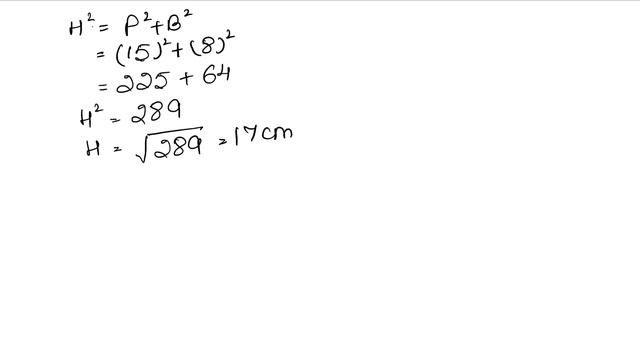 H² = P² + B²
= (15)² + (8)²
= 225 + 64
H² = 289
H = √289 = 17 cm